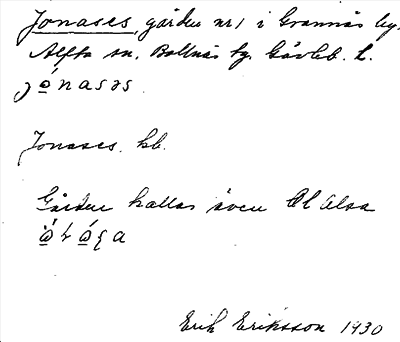 Jonases, gården nr 1 i Grannäs by.
Alfta sn. Bollnäs tg. Gävleb. L.
Jonases. hb.
Gården kallas även Ol Olsa
Erik Eriksson 1930